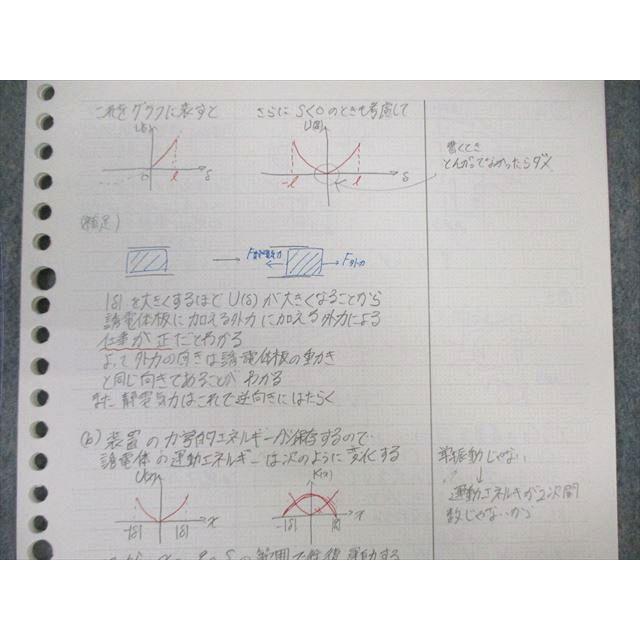 これをグラフに表すと
さらに δ<0のときも考慮して
U(δ)
U(δ)
0
l
δ
-l
l
δ
書くとき
とんがってなかったらダメ
(補足)
F静電気力
F外力
|δ|を大きくするほど U(δ)が大きくなることから
誘電体板に加える外力に加える外力による
仕事が正だとわかる
よって外力の向きは誘電体板の動き
と同じ向きであることがわかる
また静電気力はこれで逆向きにはたらく
(b) 装置の力学的エネルギーが保存するので
誘電体の運動エネルギーは次のように変化する
U(x)
K(x)
-|δ|
|δ|
x
-|δ|
|δ|
x
単振動じゃない
運動エネルギーが2次関
数じゃないから
の範囲で往復運動する